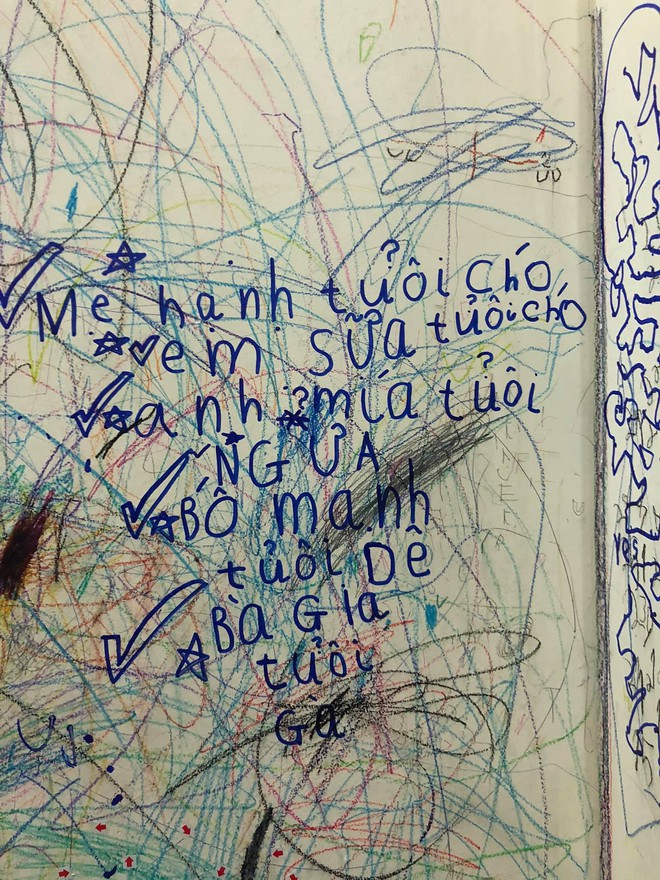 Mẹ hạnh tưởi chó
em sữa tưởi chó
anh mía tưởi
NGỰA
Bố mạnh
tưởi Dê
Bà Gia
tưởi
Gà